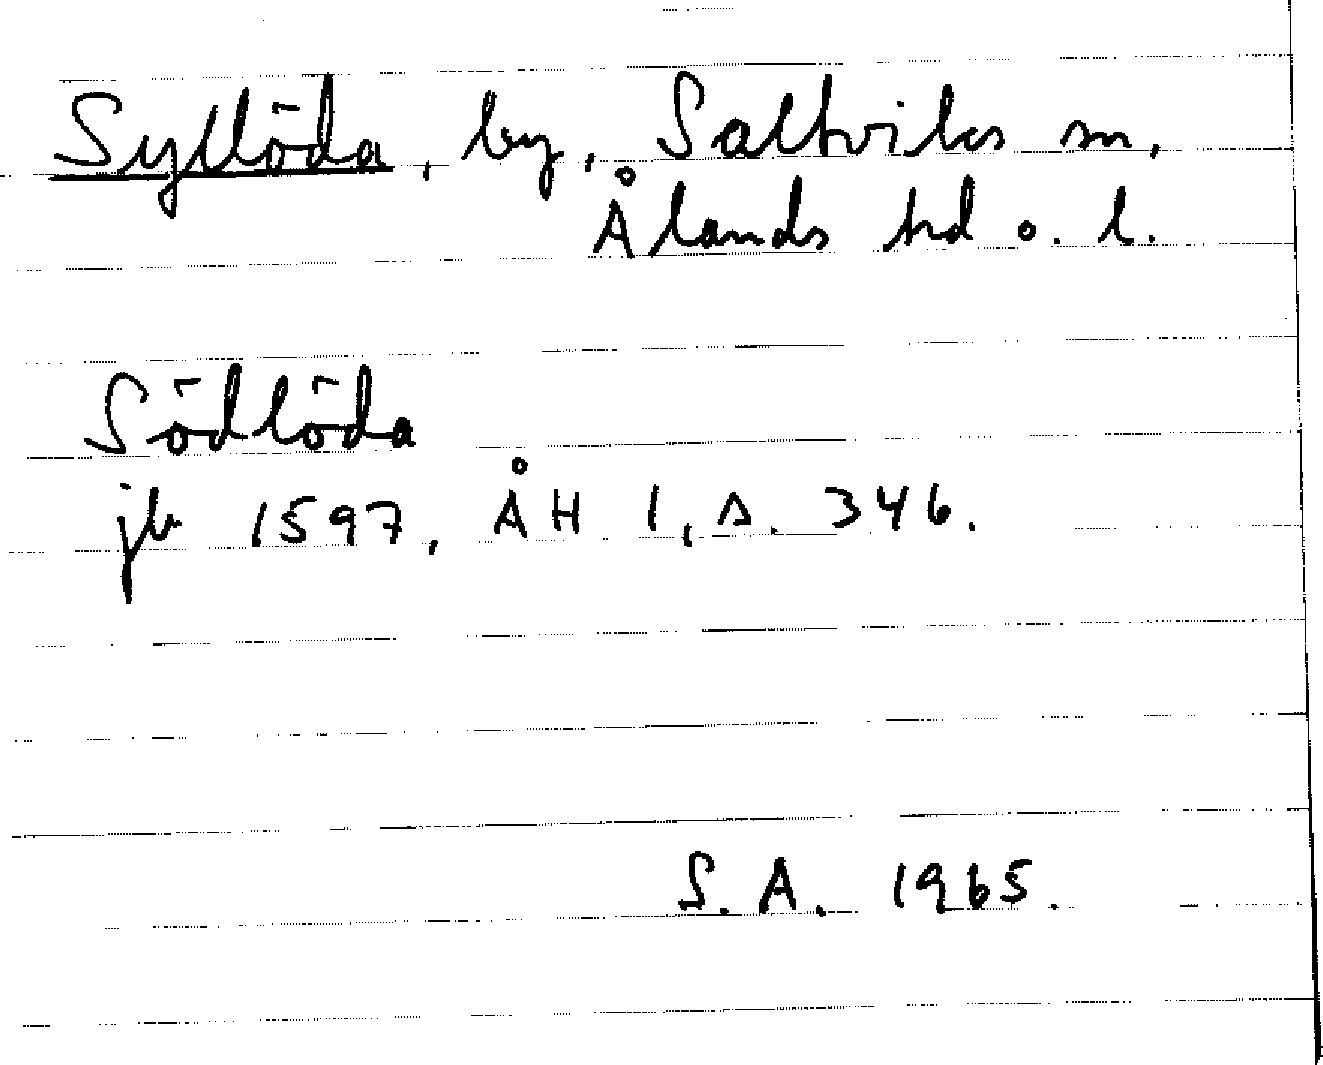 Syllöda, by, Saltviks sn,
Ålands hd o. l.
Södlöda
jb 1597, ÅH 1, s. 346.
S. A. 1965.